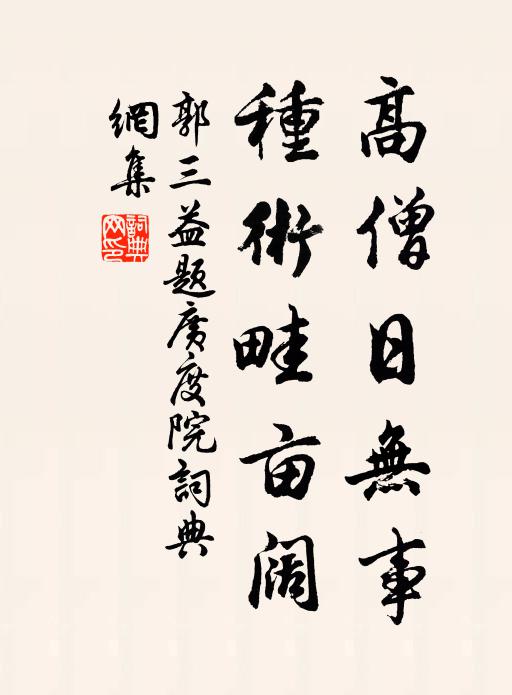 高僧日無事
種術畦亩阔
郭三益題廣度院詞典
網集
詞典
网印